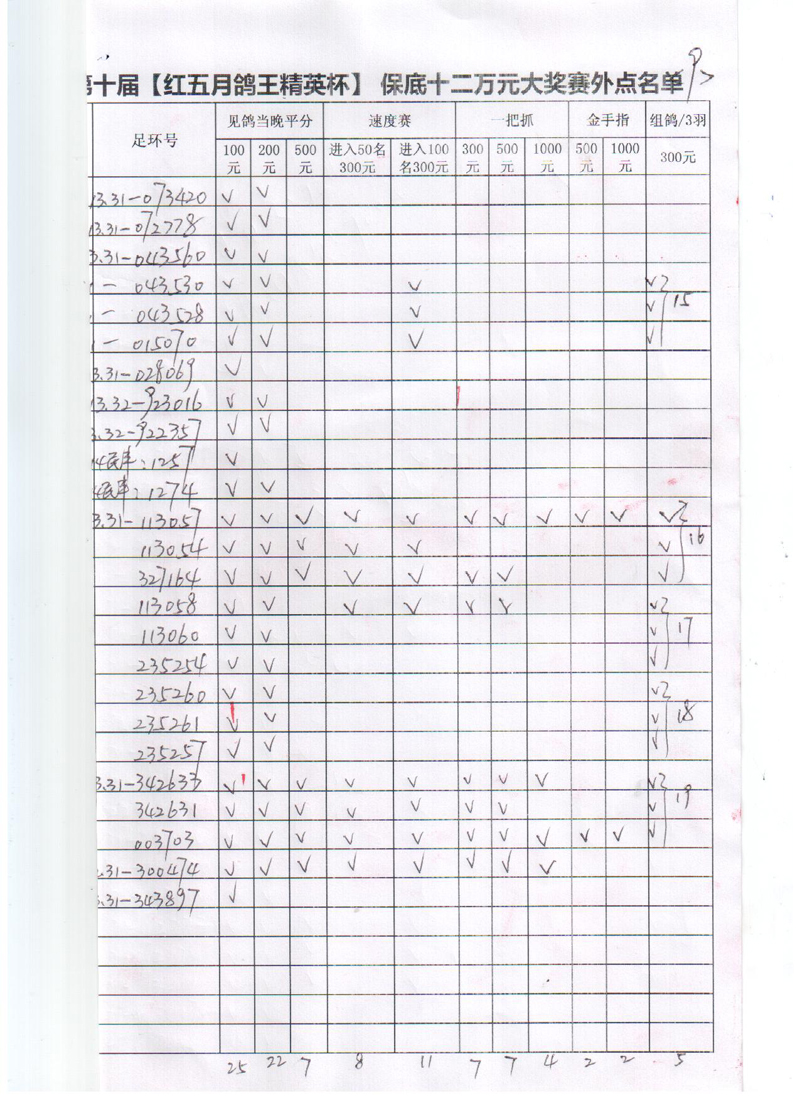 第十届【红五月鸽王精英杯】 保底十二万元大奖赛外点名单
足环号 见鸽当晚平分 速度赛 一把抓 金手指 组鸽/3羽
100元 200元 500元 进入50名300元 进入100名300元 300元 500元 1000元 500元 1000元 300元
13.31-073420 √ √
13.31-072778 √ √
3.31-043560 √ √
- 043530 √ √ √ √
- 043528 √ √ √ √ 15
1- 015070 √ √ √ √
3.31-028069 √
13.32-923016 √ √
3.32-922357 √ √
4民丰:1257 √
4民丰:1274 √ √
3.31-113057 √ √ √ √ √ √ √ √ √ √ √
113054 √ √ √ √ √ √ 16
327164 √ √ √ √ √ √ √ √
113058 √ √ √ √ √ √ √
113060 √ √ √ 17
235254 √ √ √
235260 √ √ √
235261 √ √ √ 18
235257 √ √ √
3.31-342633 √ √ √ √ √ √ √ √ √
342631 √ √ √ √ √ √ √ √ 19
003703 √ √ √ √ √ √ √ √ √ √ √
.31-300474 √ √ √ √ √ √ √ √
3.31-343897 √
25 22 7 8 11 7 7 4 2 2 5